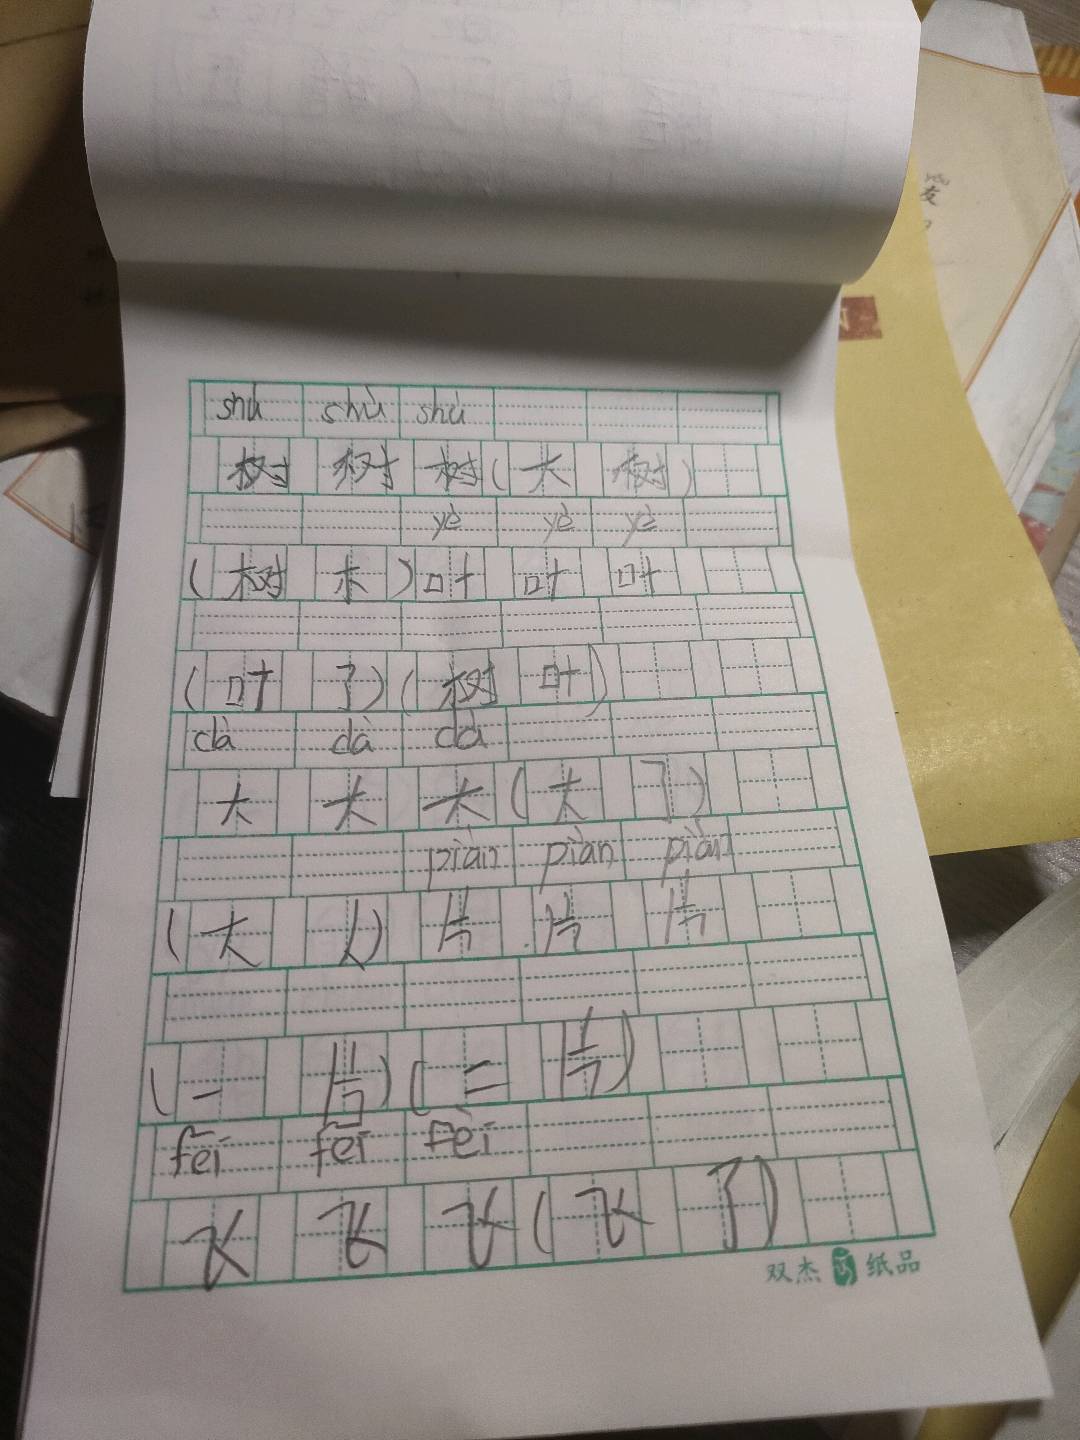 yǒu
友
shù shù shù
树 树 树 ( 大 树 )
yè yè yè
( 树 木 ) 叶 叶 叶
( 叶 子 ) ( 树 叶 )
dà dà dà
大 大 大 ( 大 )
piàn piàn piàn
( 大 人 ) 片 片 片
( 一 片 ) ( 二 片 )
fēi fēi fēi
飞 飞 飞 ( 飞 )
双杰 纸品